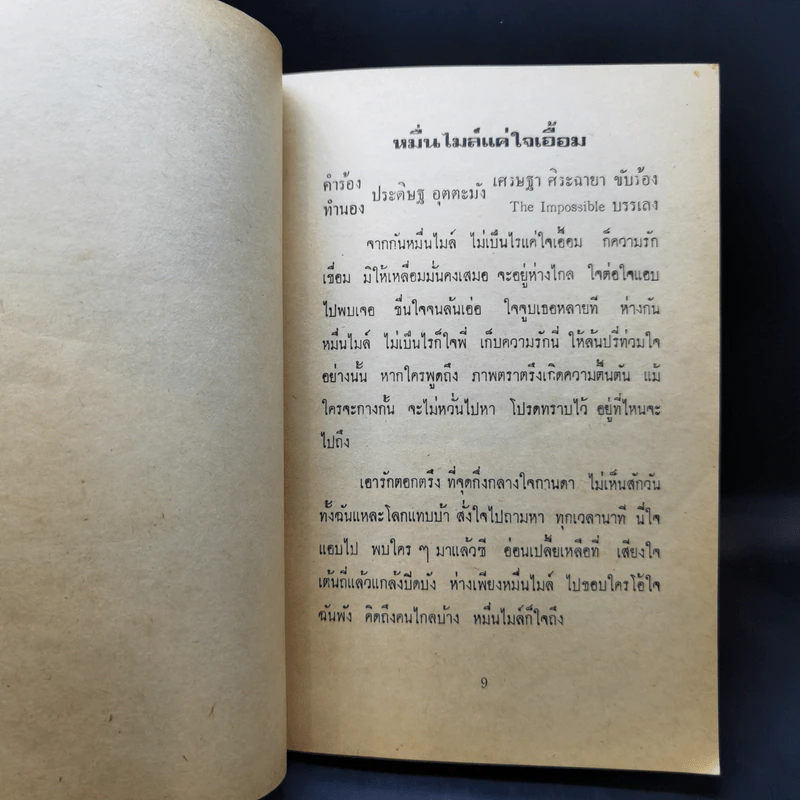 หมื่นไมล์แค่ใจเอื้อม
คำร้อง ประดิษฐ อุตตะมัง เศรษฐา ศิระฉายา ขับร้อง
ทำนอง The Impossible บรรเลง
จากกันหมื่นไมล์ ไม่เป็นไรแค่ใจเอื้อม ก็ความรัก
เชื่อม มิให้เหลื่อมมั่นคงเสมอ จะอยู่ห่างไกล ใจต่อใจแอบ
ไปพบเจอ ชื่นใจจนล้นเอ่อ ใจจูบเธอหลายที ห่างกัน
หมื่นไมล์ ไม่เป็นไรก็ใจพี่ เก็บความรักนี่ ให้ล้นปรี่ท่วมใจ
อย่างนั้น หากใครพูดถึง ภาพตราตรึงเกิดความตื้นตัน แม้
ใครจะกางกั้น จะไม่หวั่นไปหา โปรดทราบไว้ อยู่ที่ไหนจะ
ไปถึง
เอารักตอกตรึง ที่จุดกึ่งกลางใจกานดา ไม่เห็นสักวัน
ทั้งฉันแหละโลกแทบบ้า สั่งใจไปถามหา ทุกเวลานาที นี่ใจ
แอบไป พบใคร ๆ มาแล้วซี อ่อนเปลี้ยเหลือที่ เสียงใจ
เต้นถี่แล้วแกล้งปิดบัง ห่างเพียงหมื่นไมล์ ไปชอบใครโอ้ใจ
ฉันพัง คิดถึงคนไกลบ้าง หมื่นไมล์ก็ใจถึง
9